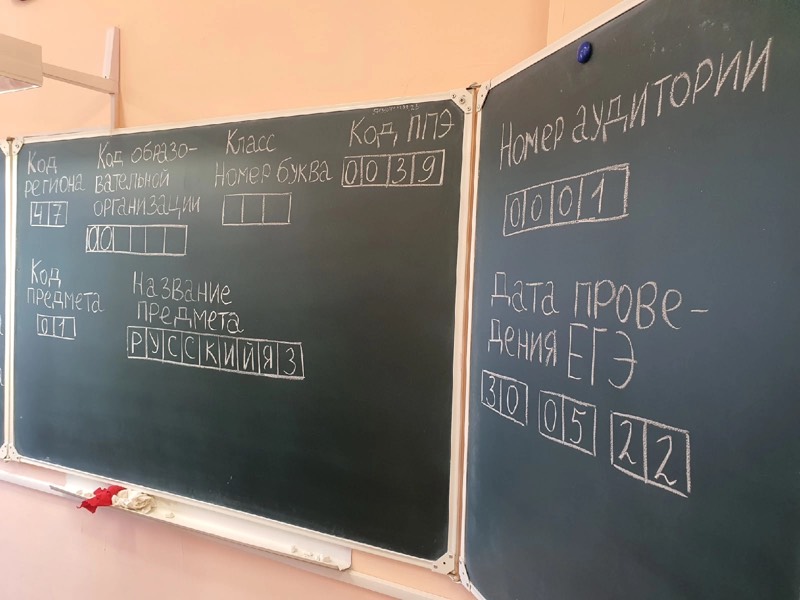 Код
региона
47
Код образо-
вательной
организации
00
Класс
Номер буква
Код ППЭ
0039
Код
предмета
01
Название
предмета
РУССКИЙЯЗ
Номер аудитории
0001
Дата прове-
дения ЕГЭ
30 05 22